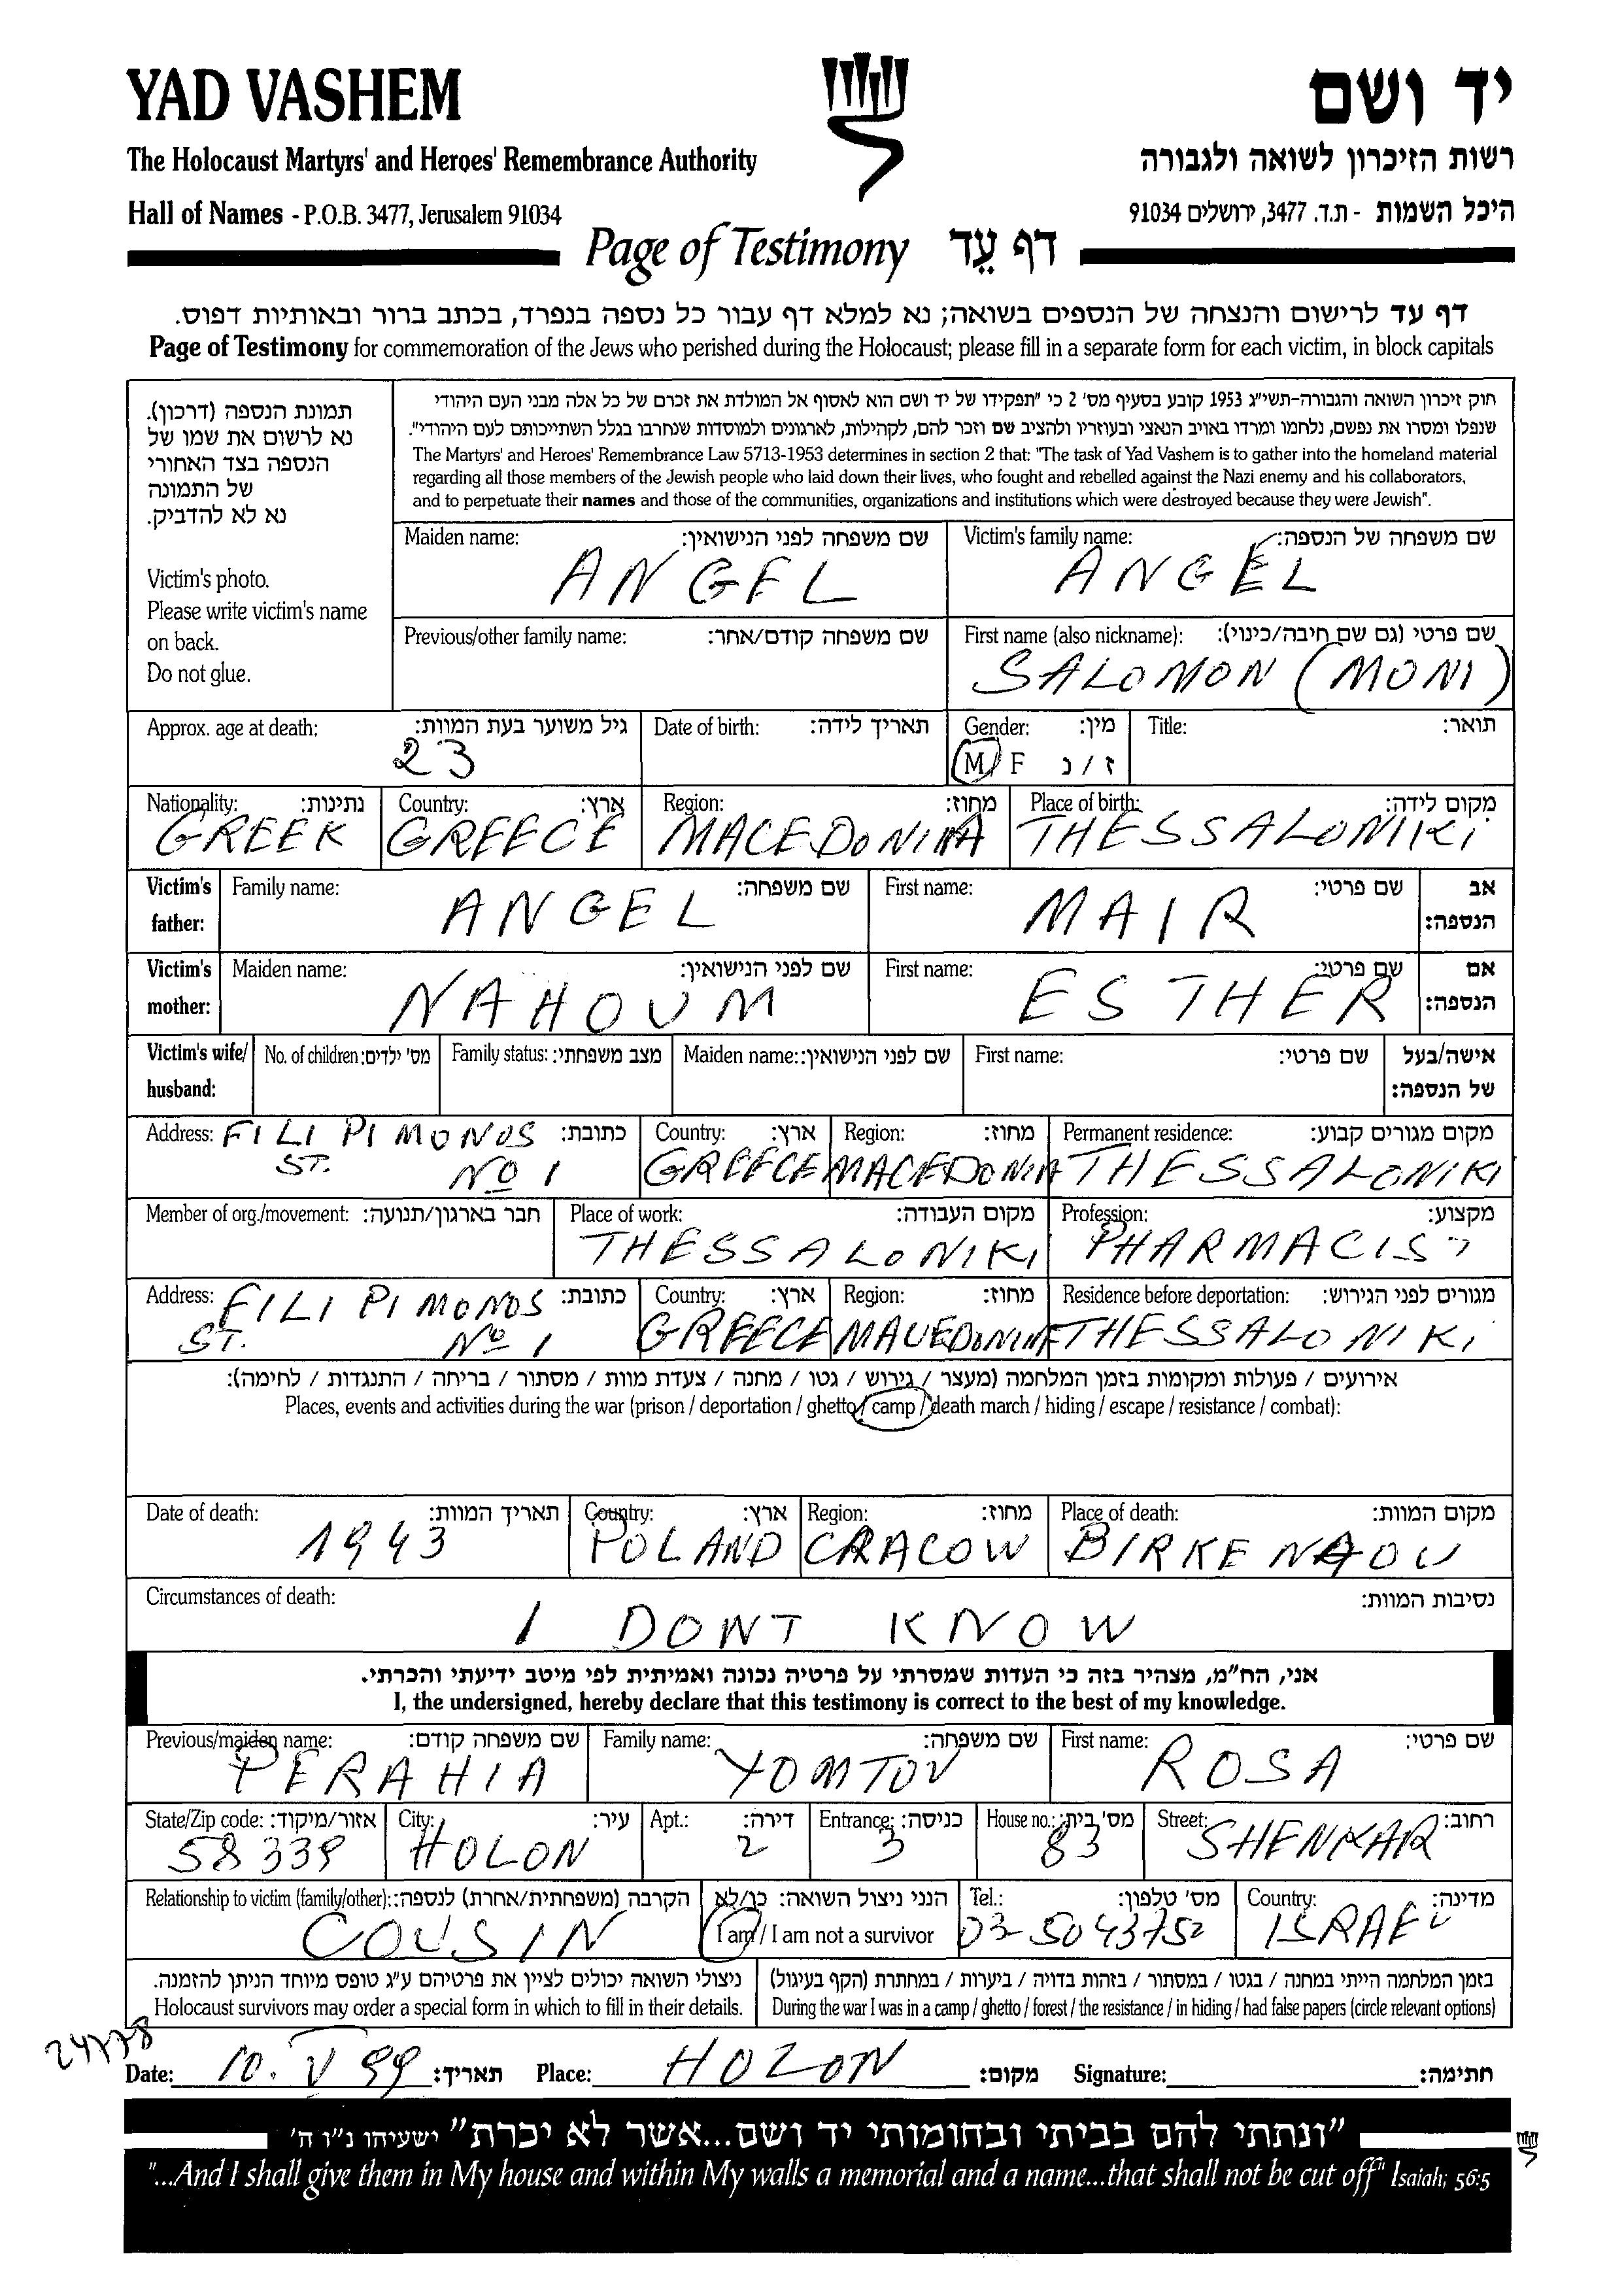 YAD VASHEM
יד ושם
The Holocaust Martyrs' and Heroes' Remembrance Authority
רשות הזיכרון לשואה ולגבורה
Hall of Names - P.O.B. 3477, Jerusalem 91034
היכל השמות - ת.ד. 3477, ירושלים 91034
Page of Testimony דף עֵד
דף עד לרישום והנצחה של הנספים בשואה; נא למלא דף עבור כל נספה בנפרד, בכתב ברור ובאותיות דפוס.
Page of Testimony for commemoration of the Jews who perished during the Holocaust; please fill in a separate form for each victim, in block capitals
תמונת הנספה (דרכון).
נא לרשום את שמו של
הנספה בצד האחורי
של התמונה
נא לא להדביק.
Victim's photo.
Please write victim's name
on back.
Do not glue.
חוק זיכרון השואה והגבורה-תשי"ג 1953 קובע בסעיף מס' 2 כי "תפקידו של יד ושם הוא לאסוף אל המולדת את זכרם של כל אלה מבני העם היהודי
שנפלו ומסרו את נפשם, נלחמו ומרדו באויב הנאצי ובעוזריו ולהציב שם וזכר להם, לקהילות, לארגונים ולמוסדות שנחרבו בגלל השתייכותם לעם היהודי".
The Martyrs' and Heroes' Remembrance Law 5713-1953 determines in section 2 that: "The task of Yad Vashem is to gather into the homeland material
regarding all those members of the Jewish people who laid down their lives, who fought and rebelled against the Nazi enemy and his collaborators,
and to perpetuate their names and those of the communities, organizations and institutions which were destroyed because they were Jewish".
Maiden name: שם משפחה לפני הנישואין: Victim's family name: שם משפחה של הנספה:
ANGEL ANGEL
Previous/other family name: שם משפחה קודם/אחר: First name (also nickname): שם פרטי (גם שם חיבה/כינוי):
SALOMON (MONI)
Approx. age at death: גיל משוער בעת המוות: Date of birth: תאריך לידה: Gender: מין: Title: תואר:
23 M F ז / נ
Nationality: נתינות: Country: ארץ: Region: מחוז: Place of birth: מקום לידה:
GREEK GREECE MACEDONIA THESSALONIKI
Victim's father: Family name: שם משפחה: First name: שם פרטי: אב הנספה:
ANGEL MAIR
Victim's mother: Maiden name: שם לפני הנישואין: First name: שם פרטי: אם הנספה:
NAHOUM ESTHER
Victim's wife/ husband: No. of children: מס' ילדים: Family status: מצב משפחתי: Maiden name: שם לפני הנישואין: First name: שם פרטי: אישה/בעל של הנספה:
Address: כתובת: Country: ארץ: Region: מחוז: Permanent residence: מקום מגורים קבוע:
FILI PIMONOS ST. No 1 GREECE MACEDONIA THESSALONIKI
Member of org./movement: חבר בארגון/תנועה: Place of work: מקום העבודה: Profession: מקצוע:
THESSALONIKI PHARMACIST
Address: כתובת: Country: ארץ: Region: מחוז: Residence before deportation: מגורים לפני הגירוש:
FILI PIMONOS ST. No 1 GREECE MACEDONIA THESSALONIKI
אירועים / פעולות ומקומות בזמן המלחמה (מעצר / גירוש / גטו / מחנה / צעדת מוות / מסתור / בריחה / התנגדות / לחימה):
Places, events and activities during the war (prison / deportation / ghetto / camp / death march / hiding / escape / resistance / combat):
Date of death: תאריך המוות: Country: ארץ: Region: מחוז: Place of death: מקום המוות:
1943 POLAND CRACOW BIRKENAOU
Circumstances of death: נסיבות המוות:
I DONT KNOW
אני, הח"מ, מצהיר בזה כי העדות שמסרתי על פרטיה נכונה ואמיתית לפי מיטב ידיעתי והכרתי.
I, the undersigned, hereby declare that this testimony is correct to the best of my knowledge.
Previous/maiden name: שם משפחה קודם: Family name: שם משפחה: First name: שם פרטי:
PERAHIA YOMTOV ROSA
State/Zip code: אזור/מיקוד: City: עיר: Apt.: דירה: Entrance: כניסה: House no.: מס' בית: Street: רחוב:
58339 HOLON 2 3 83 SHENKAR
Relationship to victim (family/other): הקרבה (משפחתית/אחרת) לנספה: הנני ניצול השואה: כן/לא Tel.: מס' טלפון: Country: מדינה:
COUSIN I am / I am not a survivor 03-5043752 ISRAEL
ניצולי השואה יכולים לציין את פרטיהם ע"ג טופס מיוחד הניתן להזמנה. בזמן המלחמה הייתי במחנה / בגטו / במסתור / בזהות בדויה / ביערות / במחתרת (הקף בעיגול)
Holocaust survivors may order a special form in which to fill in their details. During the war I was in a camp / ghetto / forest / the resistance / in hiding / had false papers (circle relevant options)
Date: 10. V 99 תאריך: Place: HOLON מקום: Signature: חתימה:
"ונתתי להם בביתי ובחומותי יד ושם...אשר לא יכרת" ישעיהו נ"ו ה'
"...And I shall give them in My house and within My walls a memorial and a name...that shall not be cut off" Isaiah; 56:5